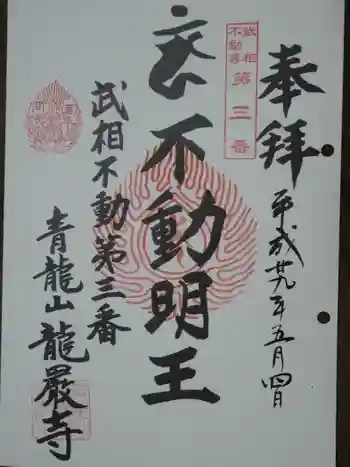 奉拝
平成廿九年五月四日
武相
不動尊
第三番
不動明王
武相不動第三番
青龍山龍嚴寺